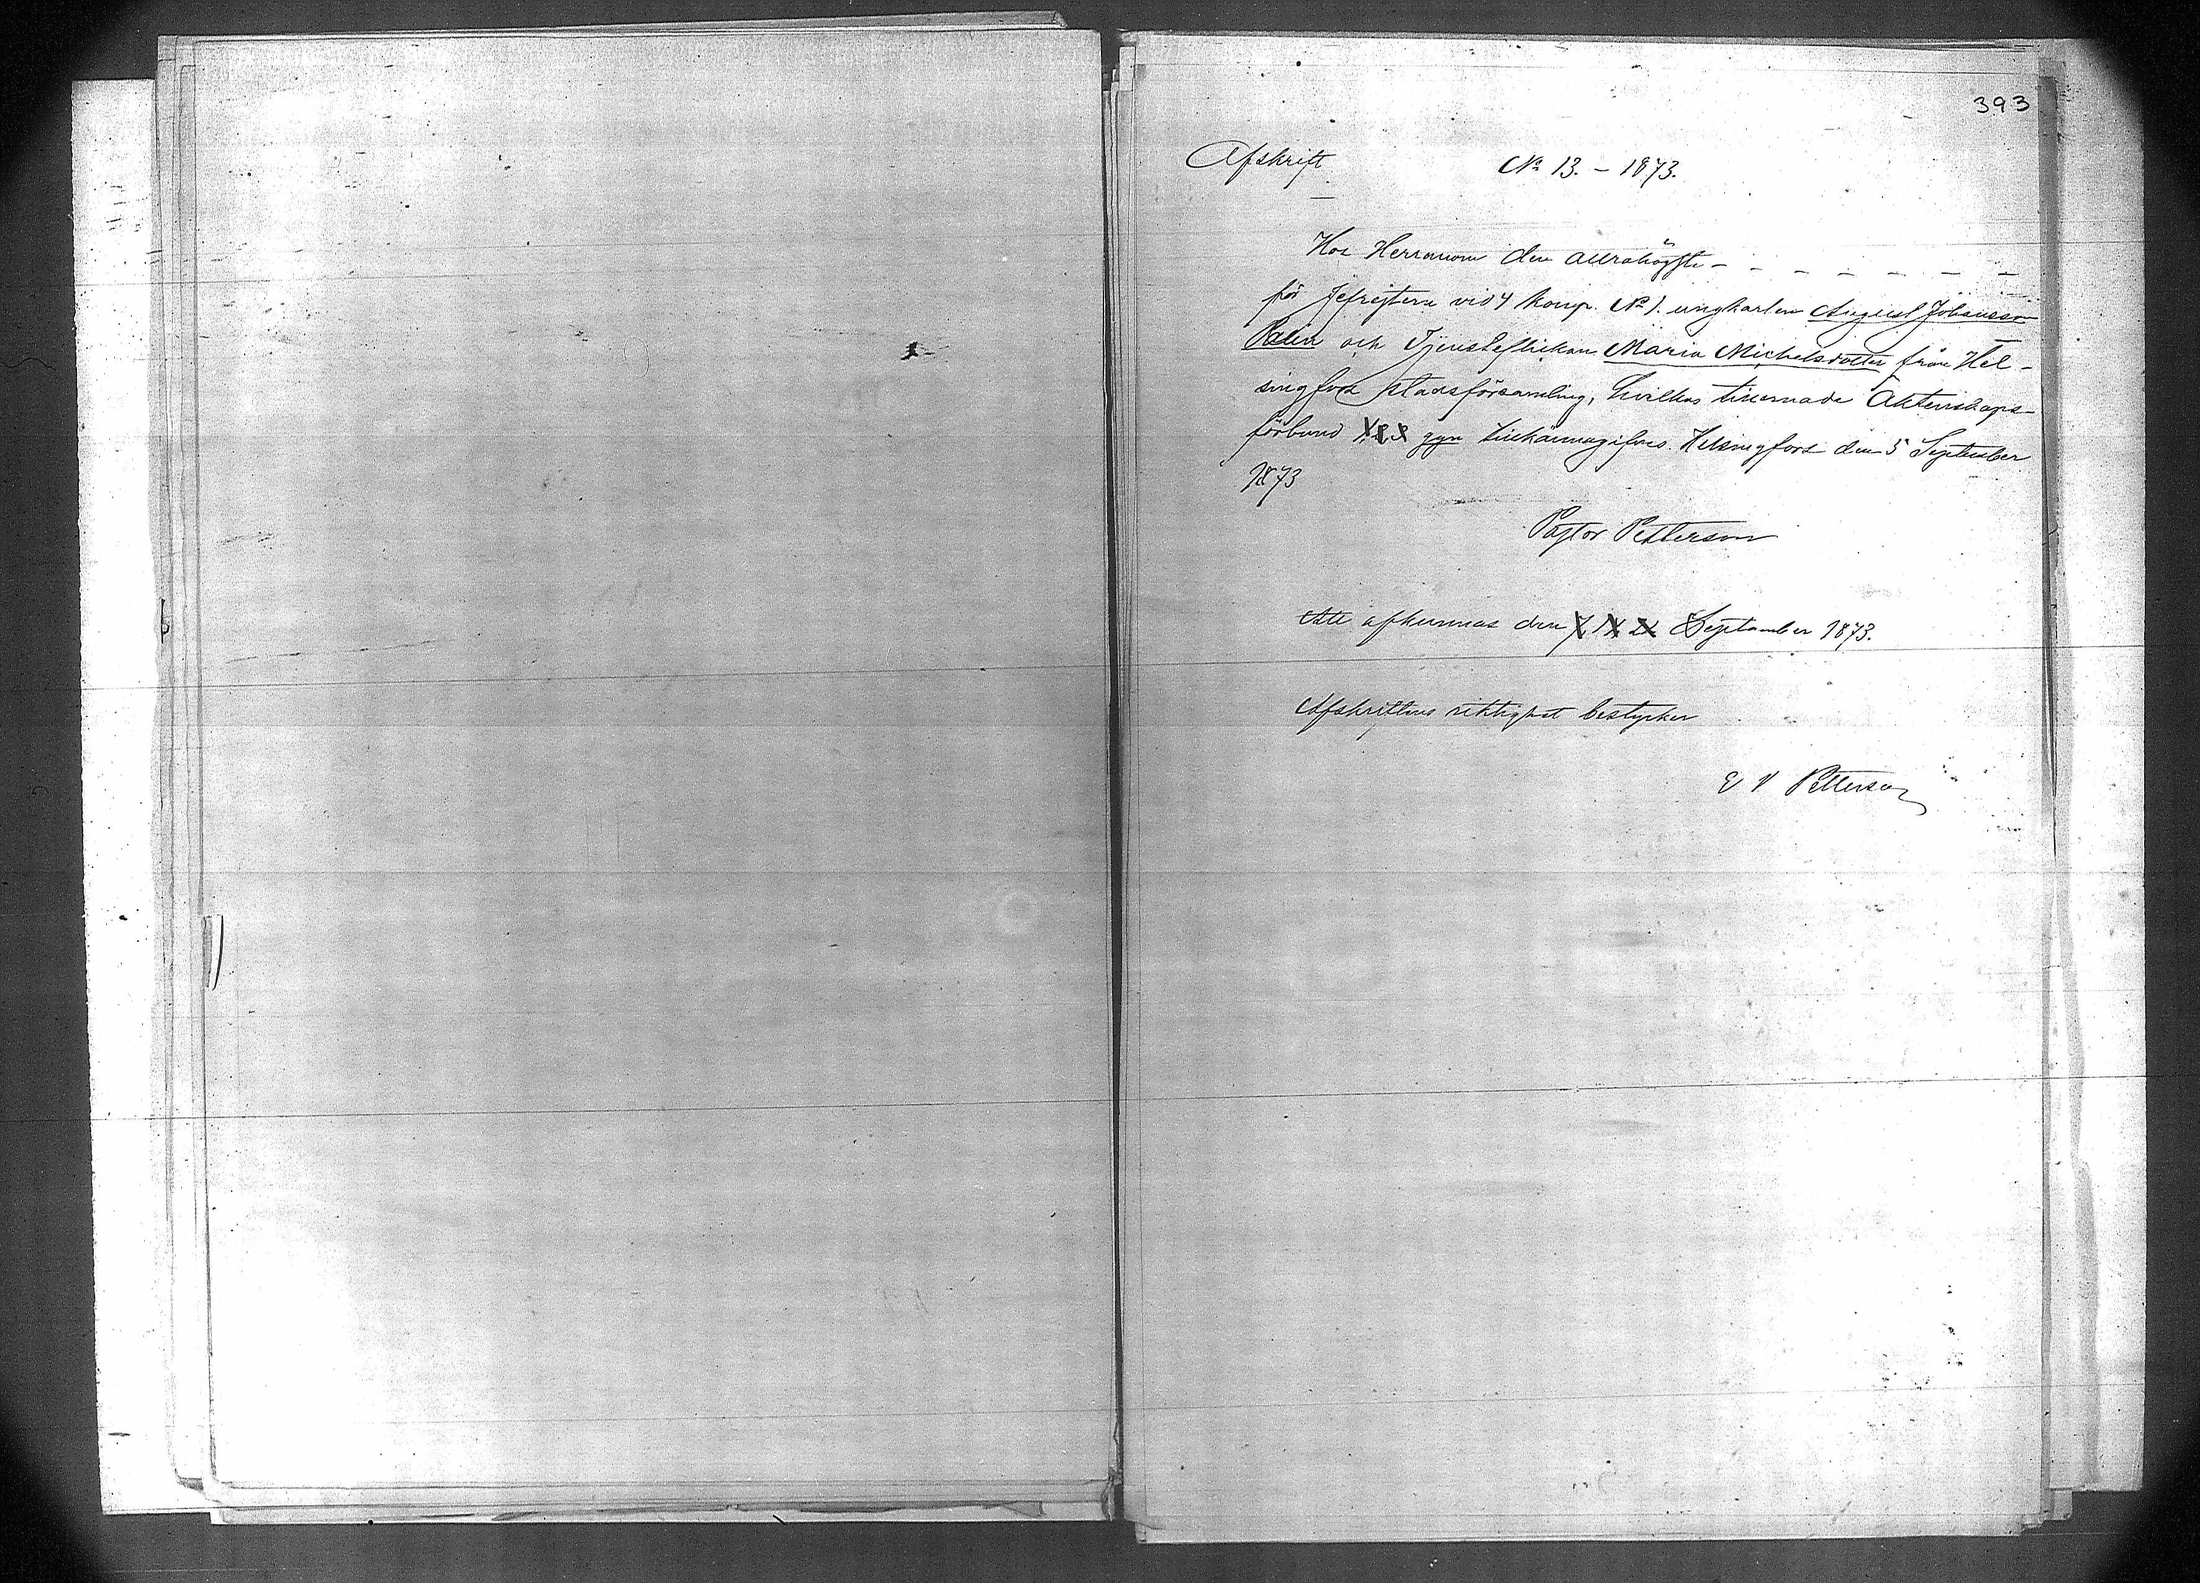 393
Afskrift
No 13. – 1873.
Hos Herranom den Allrahögste – – – – – – – –
för Jefrejtern vid 4 komp. No 1. ungkarlen August Johansson
Palin och Tjensteflickan Maria Michelsdotter från Hel-
singfors stadsförsamling, hvilkas timmade Äktenskaps-
förbund 1 2 3 ggn tillkännagifves. Helsingfors den 5 September
1873
Pastor Petterson
Att afkunnas den 7 14 21 September 1873.
Afskriftens riktighet bestyrker
E V Petterson